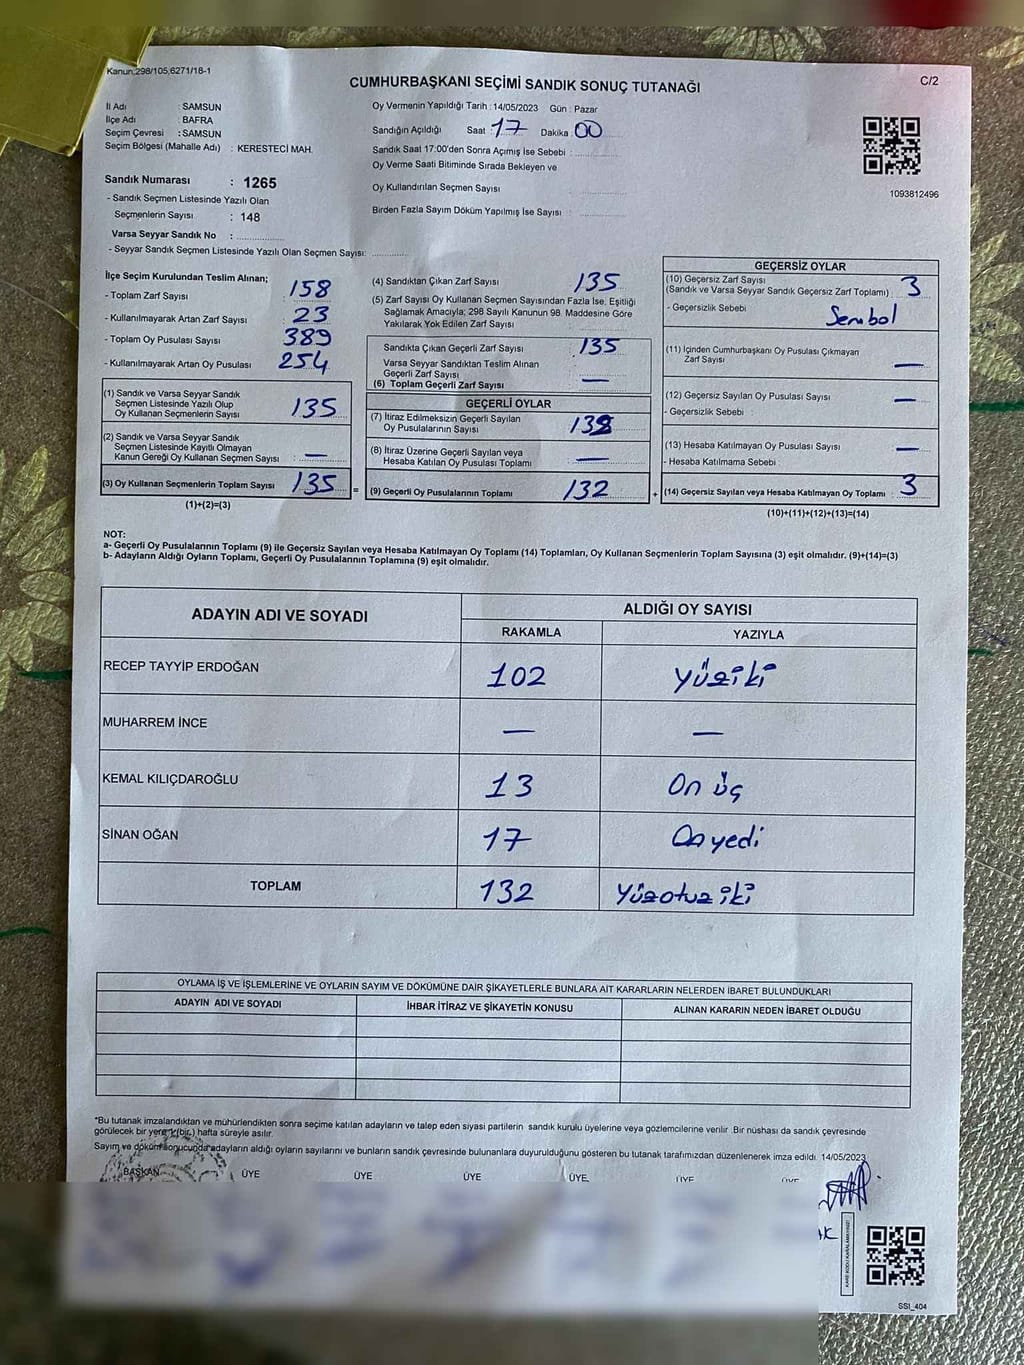 Kanun;298/105,6271/18-1
C/2
CUMHURBAŞKANI SEÇİMİ SANDIK SONUÇ TUTANAĞI
İl Adı : SAMSUN
İlçe Adı : BAFRA
Seçim Çevresi : SAMSUN
Seçim Bölgesi (Mahalle Adı) : KERESTECİ MAH.
Oy Vermenin Yapıldığı Tarih : 14/05/2023 Gün : Pazar
Sandığın Açıldığı Saat : 17 Dakika : 00
Sandık Saat 17:00'den Sonra Açımış İse Sebebi :
Oy Verme Saati Bitiminde Sırada Bekleyen ve
Oy Kullandırılan Seçmen Sayısı
Birden Fazla Sayım Döküm Yapılmış İse Sayısı :
1093812496
Sandık Numarası : 1265
- Sandık Seçmen Listesinde Yazılı Olan
Seçmenlerin Sayısı : 148
Varsa Seyyar Sandık No :
- Seyyar Sandık Seçmen Listesinde Yazılı Olan Seçmen Sayısı:
İlçe Seçim Kurulundan Teslim Alınan;
- Toplam Zarf Sayısı 158
- Kullanılmayarak Artan Zarf Sayısı 23
- Toplam Oy Pusulası Sayısı 389
- Kullanılmayarak Artan Oy Pusulası 254
(1) Sandık ve Varsa Seyyar Sandık
Seçmen Listesinde Yazılı Olup
Oy Kullanan Seçmenlerin Sayısı 135
(2) Sandık ve Varsa Seyyar Sandık
Seçmen Listesinde Kayıtlı Olmayan
Kanun Gereği Oy Kullanan Seçmen Sayısı : —
(3) Oy Kullanan Seçmenlerin Toplam Sayısı 135 =
(1)+(2)=(3)
(4) Sandıktan Çıkan Zarf Sayısı 135
(5) Zarf Sayısı Oy Kullanan Seçmen Sayısından Fazla İse, Eşitliği
Sağlamak Amacıyla; 298 Sayılı Kanunun 98. Maddesine Göre
Yakılarak Yok Edilen Zarf Sayısı :
Sandıkta Çıkan Geçerli Zarf Sayısı : 135
Varsa Seyyar Sandıktan Teslim Alınan
Geçerli Zarf Sayısı
(6) Toplam Geçerli Zarf Sayısı —
GEÇERLİ OYLAR
(7) İtiraz Edilmeksizin Geçerli Sayılan
Oy Pusulalarının Sayısı
(8) İtiraz Üzerine Geçerli Sayılan veya
Hesaba Katılan Oy Pusulası Toplamı —
(9) Geçerli Oy Pusulalarının Toplamı 132 +
GEÇERSİZ OYLAR
(10) Geçersiz Zarf Sayısı
(Sandık ve Varsa Seyyar Sandık Geçersiz Zarf Toplamı) : 3
- Geçersizlik Sebebi : Sembol
(11) İçinden Cumhurbaşkanı Oy Pusulası Çıkmayan
Zarf Sayısı —
(12) Geçersiz Sayılan Oy Pusulası Sayısı —
- Geçersizlik Sebebi :
(13) Hesaba Katılmayan Oy Pusulası Sayısı —
- Hesaba Katılmama Sebebi :
(14) Geçersiz Sayılan veya Hesaba Katılmayan Oy Toplamı 3
(10)+(11)+(12)+(13)=(14)
NOT:
a- Geçerli Oy Pusulalarının Toplamı (9) ile Geçersiz Sayılan veya Hesaba Katılmayan Oy Toplamı (14) Toplamları, Oy Kullanan Seçmenlerin Toplam Sayısına (3) eşit olmalıdır. (9)+(14)=(3)
b- Adayların Aldığı Oyların Toplamı, Geçerli Oy Pusulalarının Toplamına (9) eşit olmalıdır.
ADAYIN ADI VE SOYADI
ALDIĞI OY SAYISI
RAKAMLA YAZIYLA
RECEP TAYYİP ERDOĞAN 102 Yüziki
MUHARREM İNCE — —
KEMAL KILIÇDAROĞLU 13 On üç
SİNAN OĞAN 17 Onyedi
TOPLAM 132 Yüzotuz iki
OYLAMA İŞ VE İŞLEMLERİNE VE OYLARIN SAYIM VE DÖKÜMÜNE DAİR ŞİKAYETLERLE BUNLARA AİT KARARLARIN NELERDEN İBARET BULUNDUKLARI
ADAYIN ADI VE SOYADI İHBAR İTİRAZ VE ŞİKAYETİN KONUSU ALINAN KARARIN NEDEN İBARET OLDUĞU
*Bu tutanak imzalandıktan ve mühürlendikten sonra seçime katılan adayların ve talep eden siyasi partilerin sandık kurulu üyelerine veya gözlemcilerine verilir .Bir nüshası da sandık çevresinde
görülecek bir yere (bir) hafta süreyle asılır.
Sayım ve döküm sonucunda adayların aldığı oyların sayılarını ve bunların sandık çevresinde bulunanlara duyurulduğunu gösteren bu tutanak tarafımızdan düzenlenerek imza edildi. 14/05/2023
BAŞKAN ÜYE ÜYE ÜYE ÜYE ÜYE
SSI_404